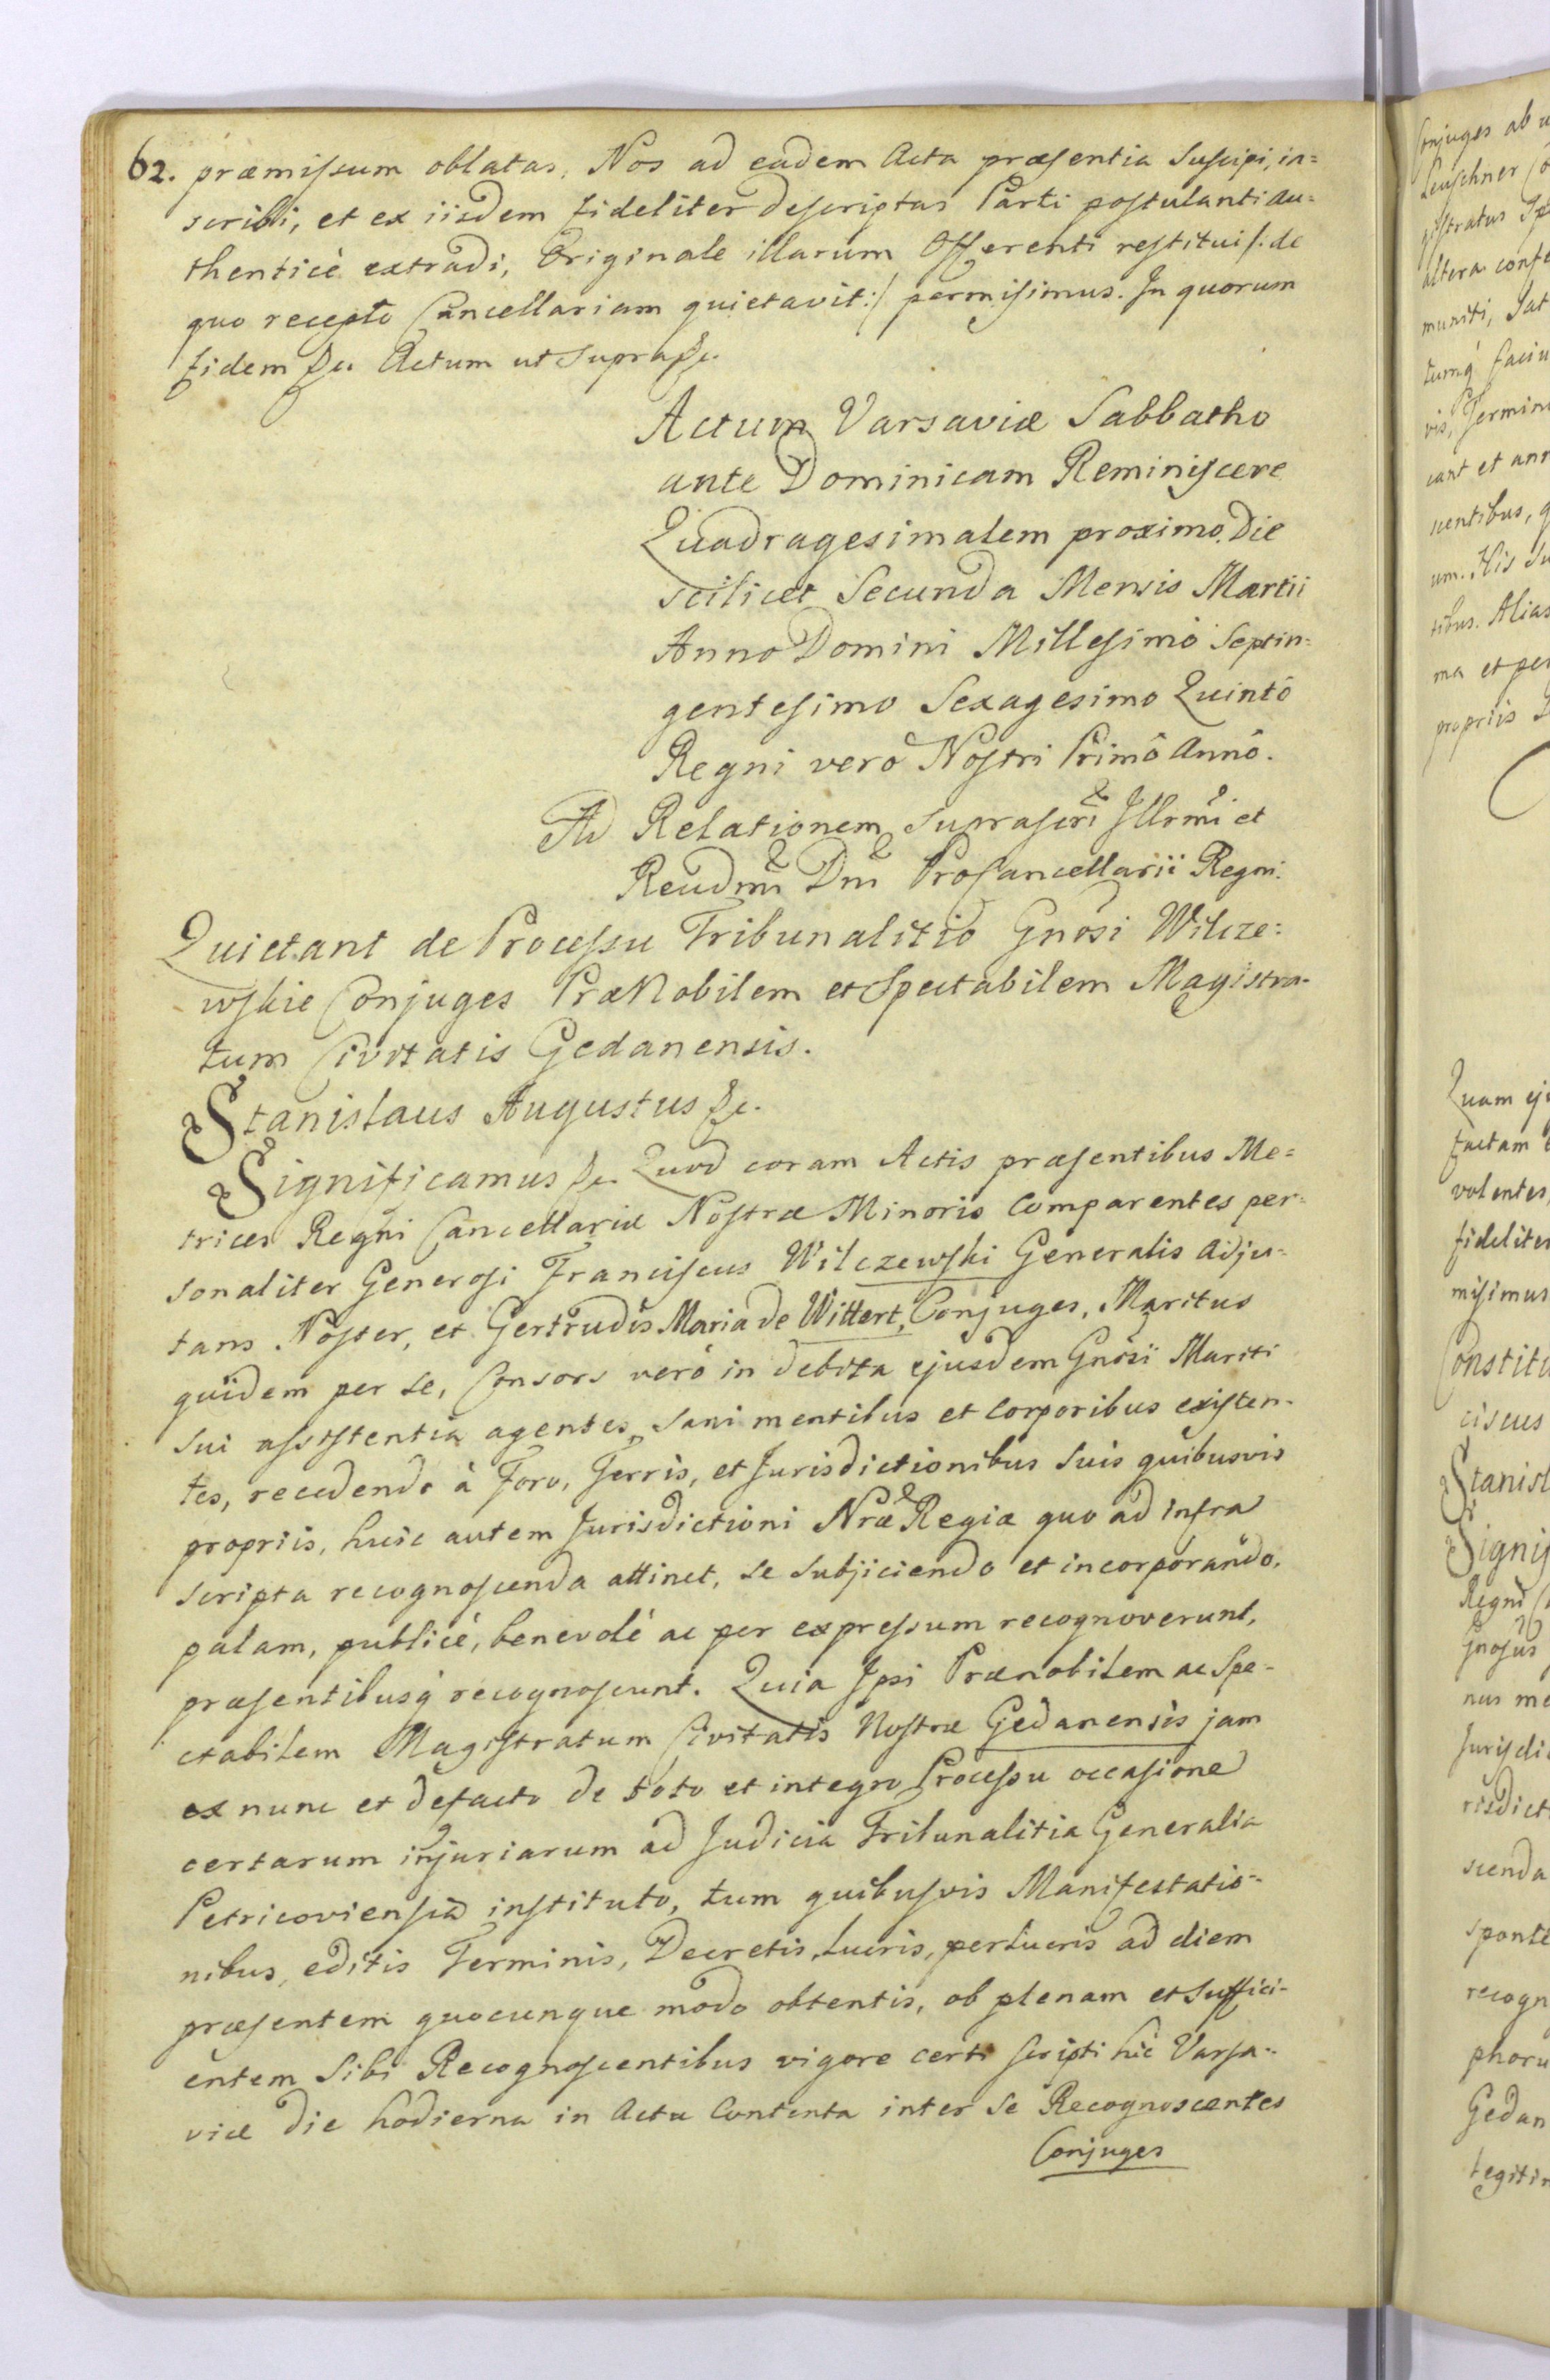 62. præmissum oblatas, Nos ad eadem Acta præsentia Suscipi, in=
scribi, et ex iisdem fideliter descriptas Parti postulanti au=
thenticè extradi, Originale illarum Offerenti restitui /: de
quo recepto Cancellariam quietavit :/ permisimus. In quorum
fidem &c. Actum ut Supra &c.
Actum Varsaviæ Sabbatho
ante Dominicam Reminiscere
Quadragesimalem proximo. Die
scilicet Secunda Mensis Martii
Anno Domini Millesimo Septin=
gentesimo Sexagesimo Quintô
Regni verò Nostri Primô Annô.
Ad Relationem suprascri Illrmi et
Reudmi Dni ProCancellarii Regni.
Quietant de Processu Tribunalitio Gnosi Wilcze=
wskie Conjuges PræNobilem et Spectabilem Magistra-
tum Civitatis Gedanensis.
Stanislaus Augustus &c.
Significamus &c. Quod coram Actis præsentibus Me=
trices Regni Cancellariæ Nostræ Minoris Comparentes per=
sonaliter Generosi Franciscus Wilczewski Generalis Adju=
tans Noster, et Gertrudis Maria de Wittert, Conjuges, Maritus
quidem per se, Consors verò in debita ejusdem Gnosi Mariti
sui assistentia agentes, sani mentibus et Corporibus existen-
tes, recedendo à Foro, Terris, et Jurisdictionibus suis quibusvis
propriis, huic autem Jurisdictioni Nræ Regiæ quo ad infra
scripta recognoscenda attinet, se subjiciendo et incorporando,
palam, publicè, benevolè ac per expressum recognoverunt,
præsentibusq recognoscunt. Quia Ipsi Prænobilem ac Spe-
ctabilem Magistratum Civitatis Nostræ Gedanensis jam
ex nunc et de facto de toto et integro Processu occasione
certarum injuriarum ad Judicia Tribunalitia Generalia
Petricoviensia instituto, tum quibusvis Manifestatio-
nibus, editis Terminis, Decretis, lucris, perlucris ad diem
præsentem quocunque modo obtentis, ob plenam et Suffici-
entem Sibi Recognoscentibus vigore certi scripti hic Varsa-
viæ die hodierna in Actu Contenta inter se Recognoscentes
Conjuges
Conjuges ab
Leuschner
gistratus
altera
muniti, Sat
tumq
vis, Termin
cant et ann
centibus, q
um. His
tibus. Alias
ma et per
propriis
Quam
factam
volentes,
fideliter
misimus
Constit
ciscus
Stanisl
Signi
Regni
Gnosus
nus me
Jurisdi
risdict
scenda
sponte
recogn
phoru
Gedan
legiti